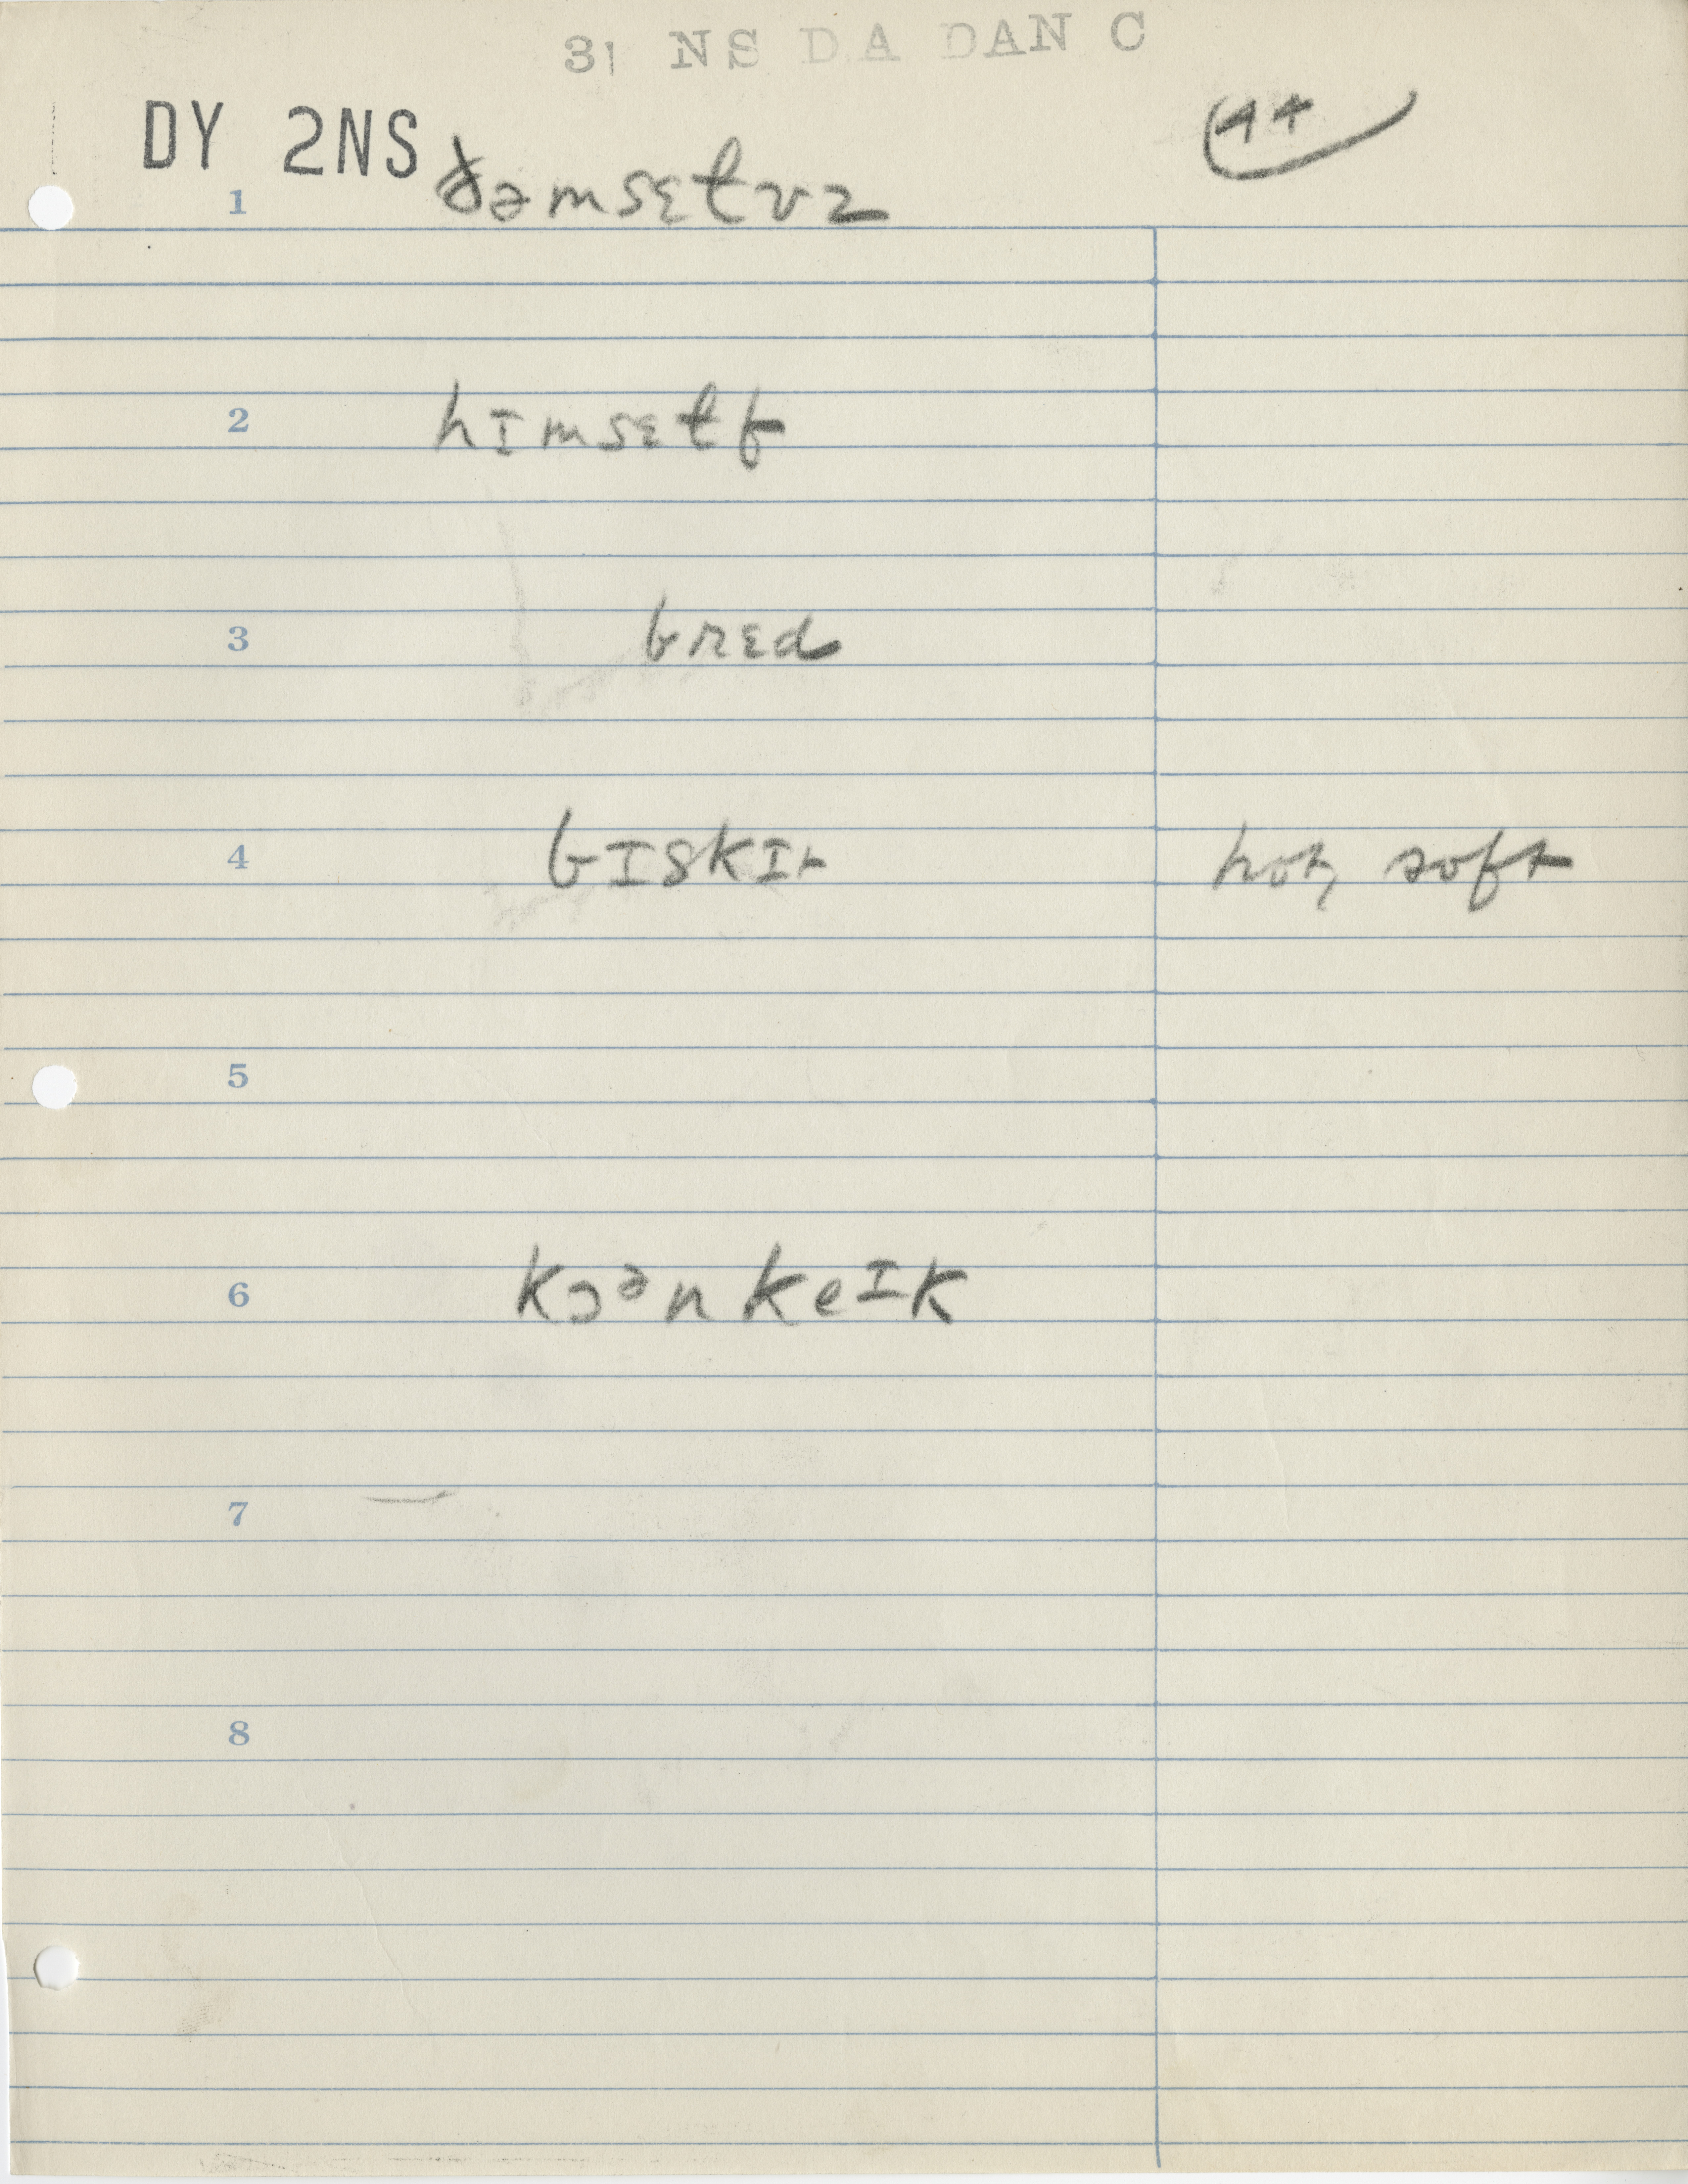 31 NS DA DAN C
DY 2NS
44
1 ðəmsɛɫvz
2 hɪmsɛɫf
3 brɛd
4 bɪskɪt hot, soft
5
6 kɔᵊn keɪk
7
8